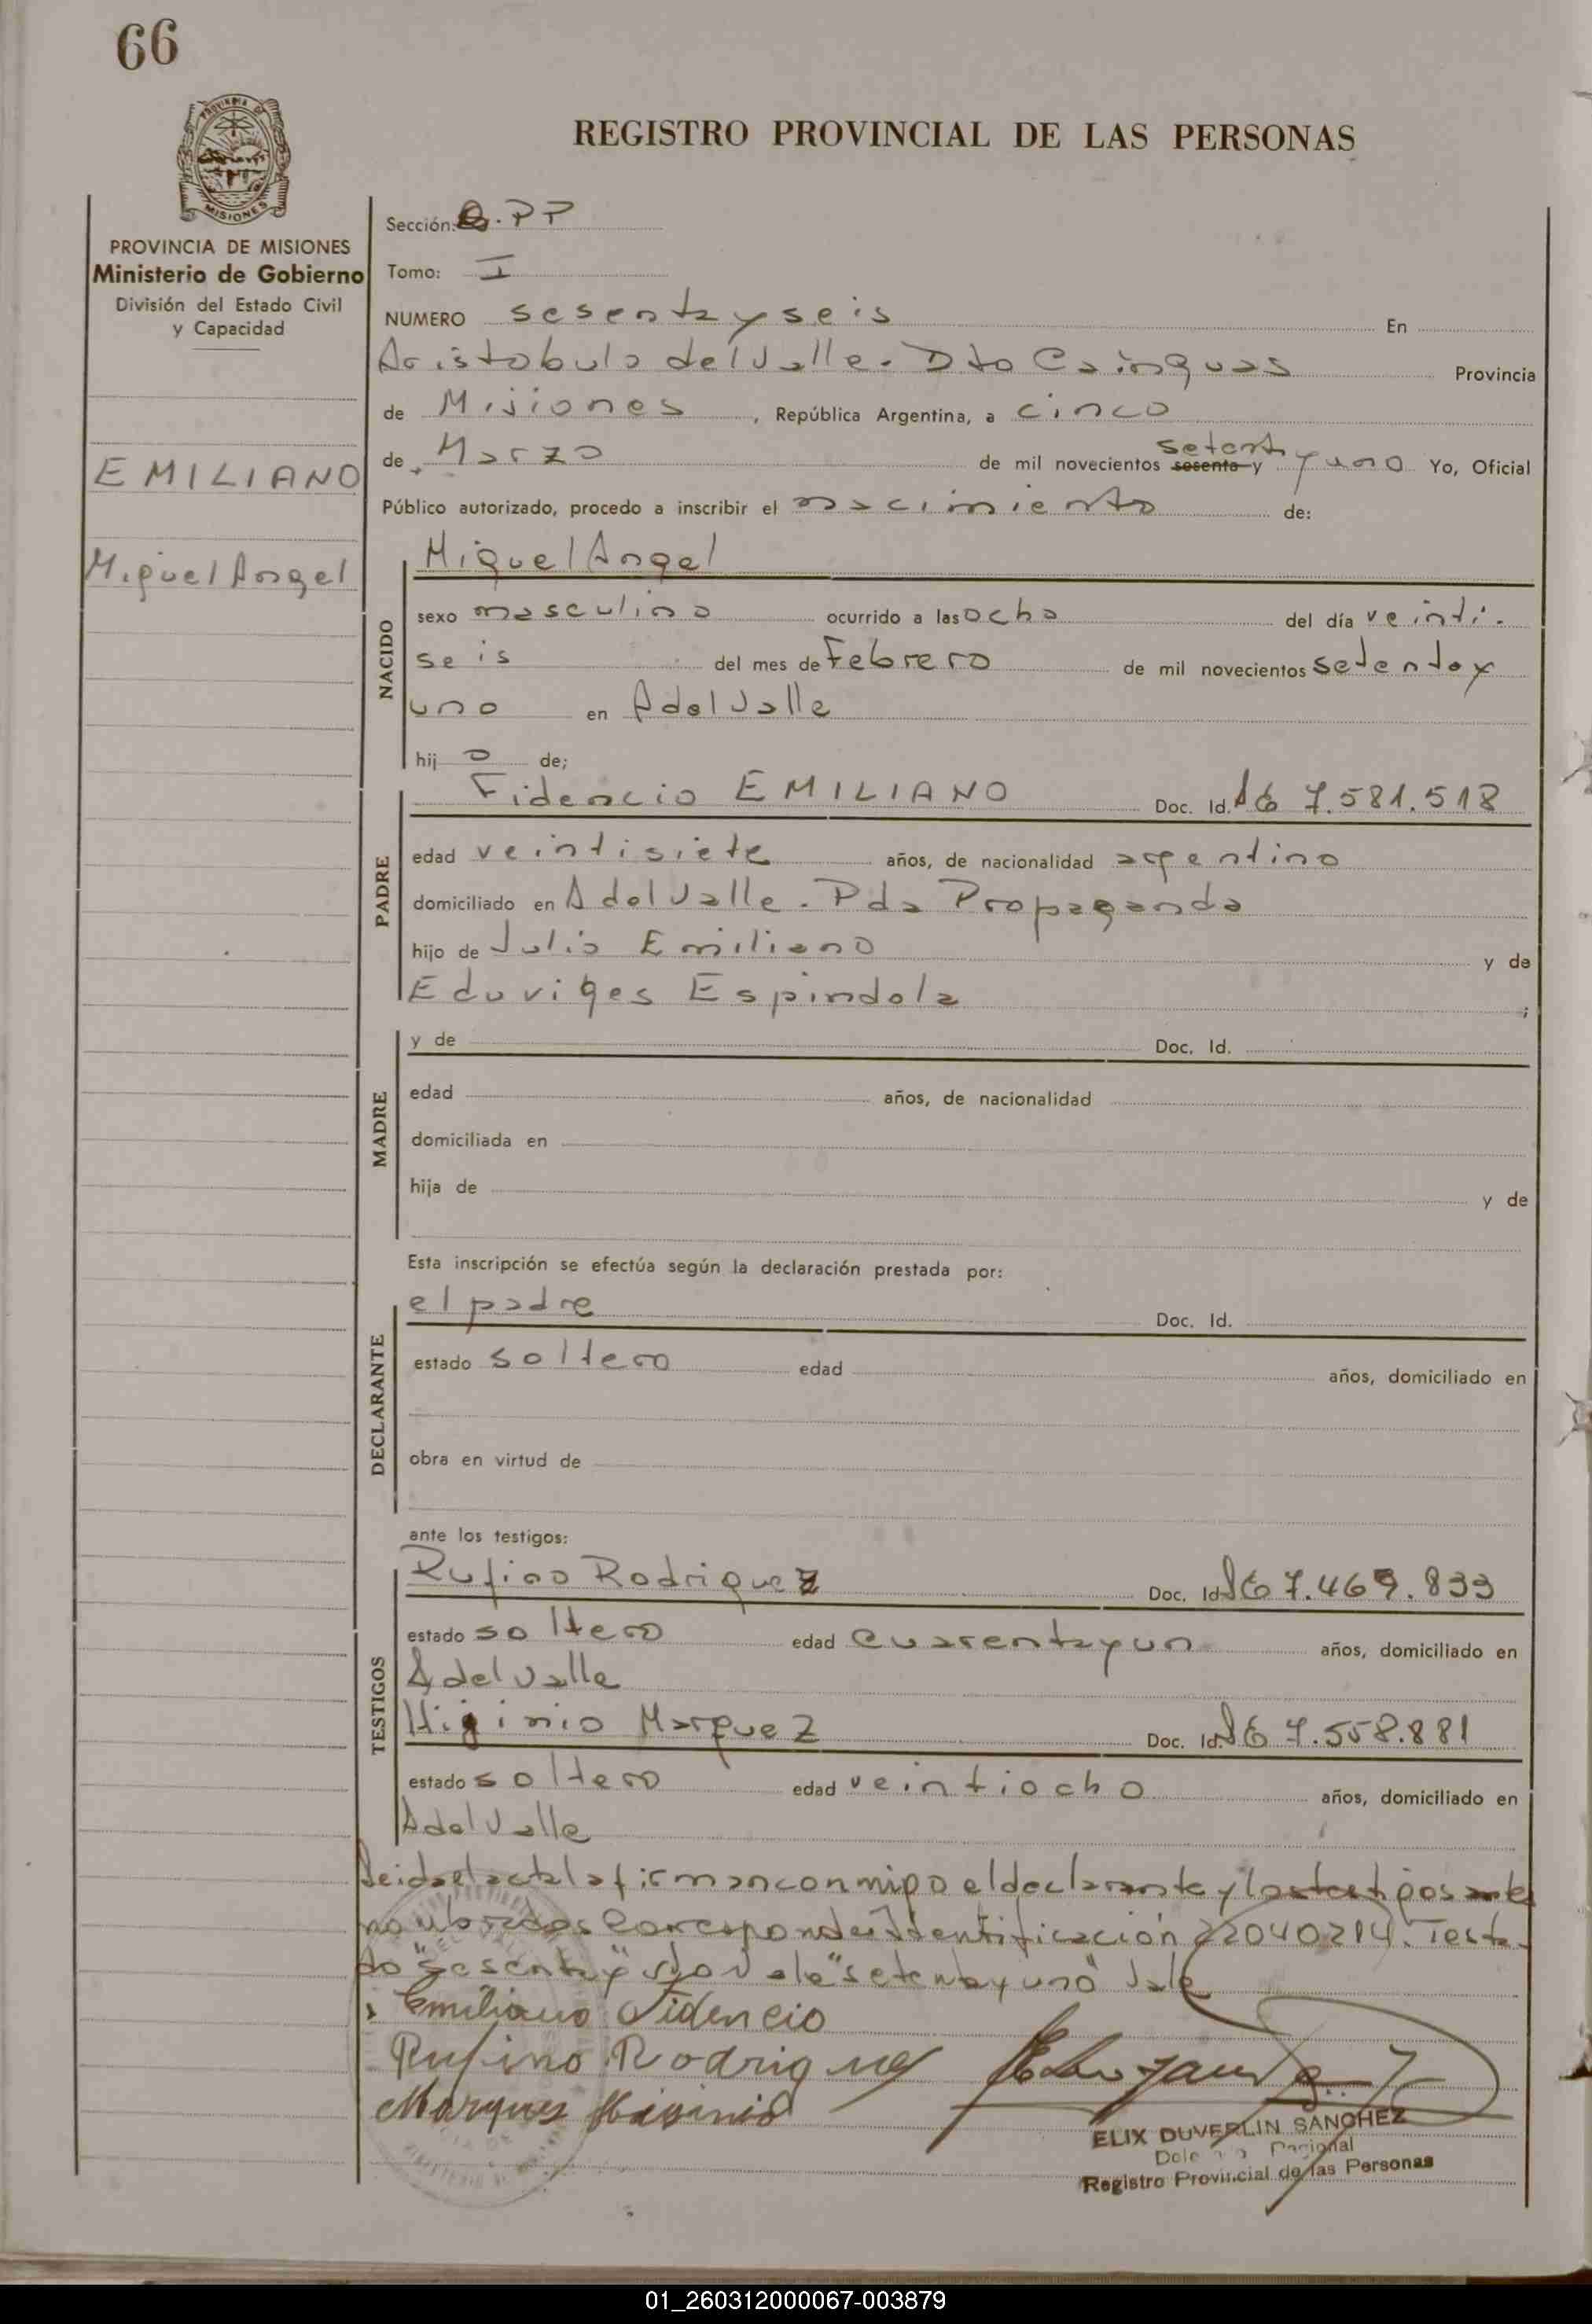 66
PROVINCIA DE
MISIONES
REGISTRO PROVINCIAL DE LAS PERSONAS
PROVINCIA DE MISIONES
Ministerio de Gobierno
División del Estado Civil
y Capacidad
EMILIANO
Miguel Angel
Sección: .PP
Tomo: I
NUMERO sesenta y seis En
Aristobulo del Valle. Dto Cainguas Provincia
de Misiones, República Argentina, a cinco
de Marzo de mil novecientos sesenta y setenta y uno Yo, Oficial
Público autorizado, procedo a inscribir el nacimiento de:
NACIDO
Miguel Angel
sexo masculino ocurrido a las ocho del día veinti-
seis del mes de Febrero de mil novecientos setenta y
uno en A del Valle
hij o de;
PADRE
Fidencio EMILIANO Doc. Id. 7.581.518
edad veintisiete años, de nacionalidad argentino
domiciliado en A del Valle. Pda Propaganda
hijo de Julio Emiliano y de
Eduviges Espindola ;
MADRE
y de Doc. Id.
edad años, de nacionalidad
domiciliada en
hija de y de
Esta inscripción se efectúa según la declaración prestada por:
DECLARANTE
el padre Doc. Id.
estado soltero edad años, domiciliado en
obra en virtud de
ante los testigos:
TESTIGOS
Rufino Rodriguez Doc. Id. 7.469.833
estado soltero edad cuarenta y un años, domiciliado en
A del Valle
Higinio Marquez Doc. Id. 7.558.881
estado soltero edad veintiocho años, domiciliado en
A del Valle
Leida el acta la firman conmigo el declarante y los testigos ante
nombrados Corresponde Identificación 22040214. Testa-
do "sesenta y" no Vale "setenta y uno" Vale
Emiliano Fidencio
Rufino Rodriguez
Marques Higinio
ELIX DUVERLIN SANCHEZ
Registro Provincial de las Personas
01_260312000067-003879